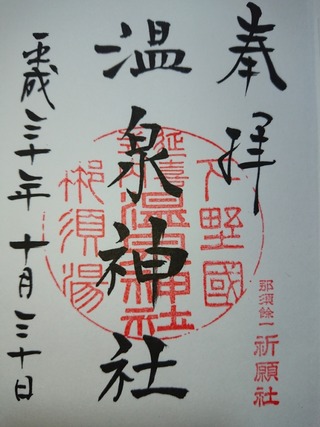 奉拝
下野國
延喜式内
温泉神社
那須湯
温泉神社
平成三十年十月三十日
那須餘一
祈願社